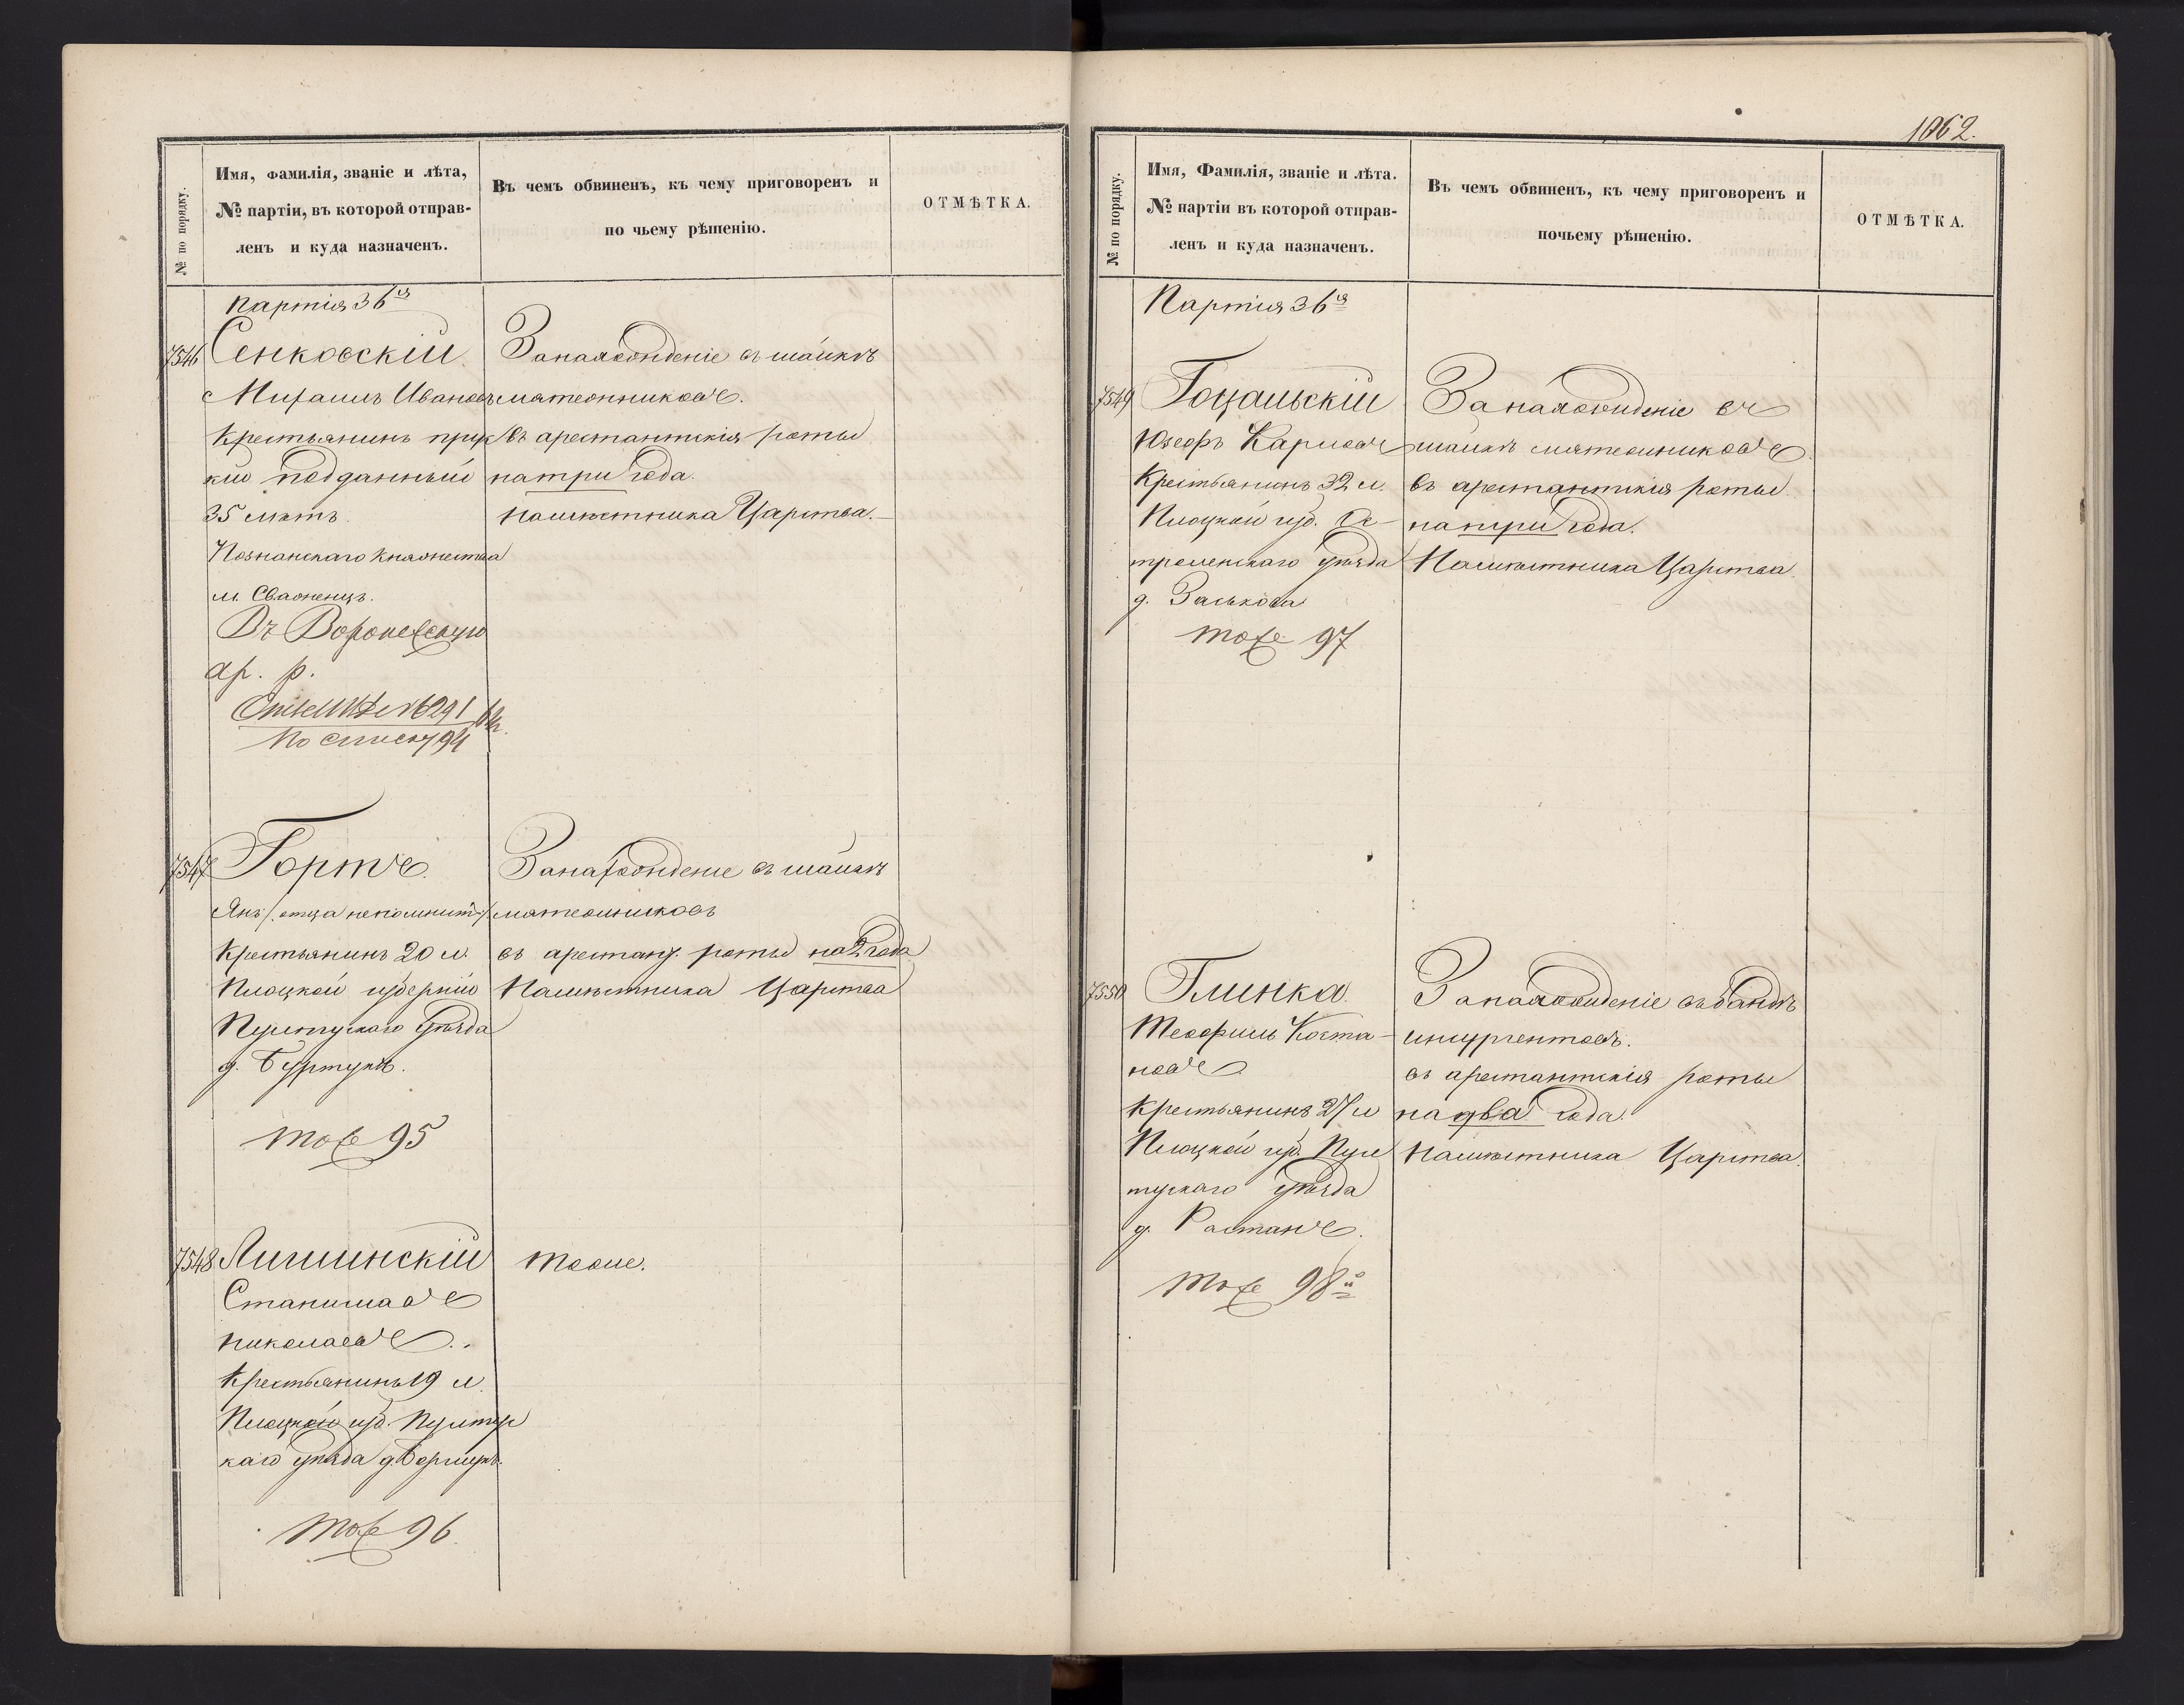 № по порядку.
Имя, Фамилія, званіе и лѣта,
№ партіи, въ которой отправ-
ленъ и куда назначенъ.
Въ чемъ обвиненъ, къ чему приговоренъ и
по чьему рѣшенію.
ОТМѢТКА.
Партія 36я
7546 Сенковскій
Михаилъ Ивановъ
Крестьянинъ прус
кій подданный
35 лѣтъ.
Познанскаго Княжества
м. Сваженцъ.
Въ Воронежскую
ар. р.
№ 6291
По списку 94
За нахожденіе въ шайкѣ
мятежниковъ.
въ арестантскія роты
на три года.
Намѣстника Царства.
7547 Гортъ.
Янъ /: отца непомнитъ :/
Крестьянинъ 20 л.
Плоцкой губерніи
Пултускаго уѣзда
д.
тоже 95
За нахожденіе въ шайкѣ
мятежниковъ
въ арестан. роты на 2 года
Намѣстника Царства
7548
Станиславъ
Николаевъ.
Крестьянинъ 19 л.
Плоцкой губ. Пултус
каго уѣзда д.
тоже 96.
Тоже.
1062.
№ по порядку.
Имя, Фамилія, званіе и лѣта.
№ партіи въ которой отправ-
ленъ и куда назначенъ.
Въ чемъ обвиненъ, къ чему приговоренъ и
почьему рѣшенію.
ОТМѢТКА.
Партія 36я
7549 Гоцальскій
Юзефъ Карловъ
Крестьянинъ 32 л.
Плоцкой губ. Ос-
троленскаго уѣзда
д. Заськова
тоже 97
За нахожденіе въ
шайкѣ мятежниковъ
въ арестантскія роты
на три года.
Намѣстника Царства.
7550 Глинка.
Теофилъ Коста-
новъ
Крестьянинъ 27 л
Плоцкой губ. Пул
тускаго уѣзда
д.
тоже 98й
За нахожденіе въ бандѣ
инсургентовъ.
въ арестантскія роты
на два года.
Намѣстника Царства.